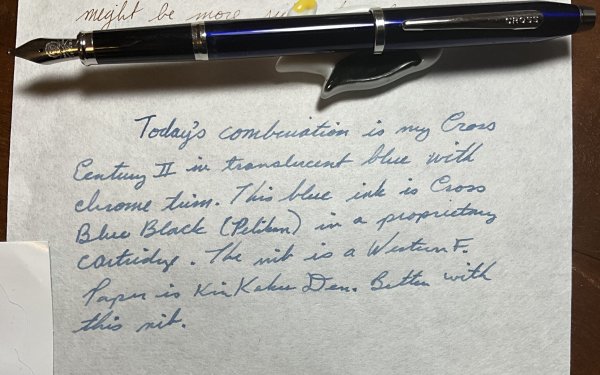 might be more
CROSS
Today's combination is my Cross
Century II in translucent blue with
chrome trim. This blue ink is Cross
Blue Black (Pelikan) in a proprietary
cartridge. The nib is a Western F.
Paper is Kin Kaku Den. Better with
this nib.